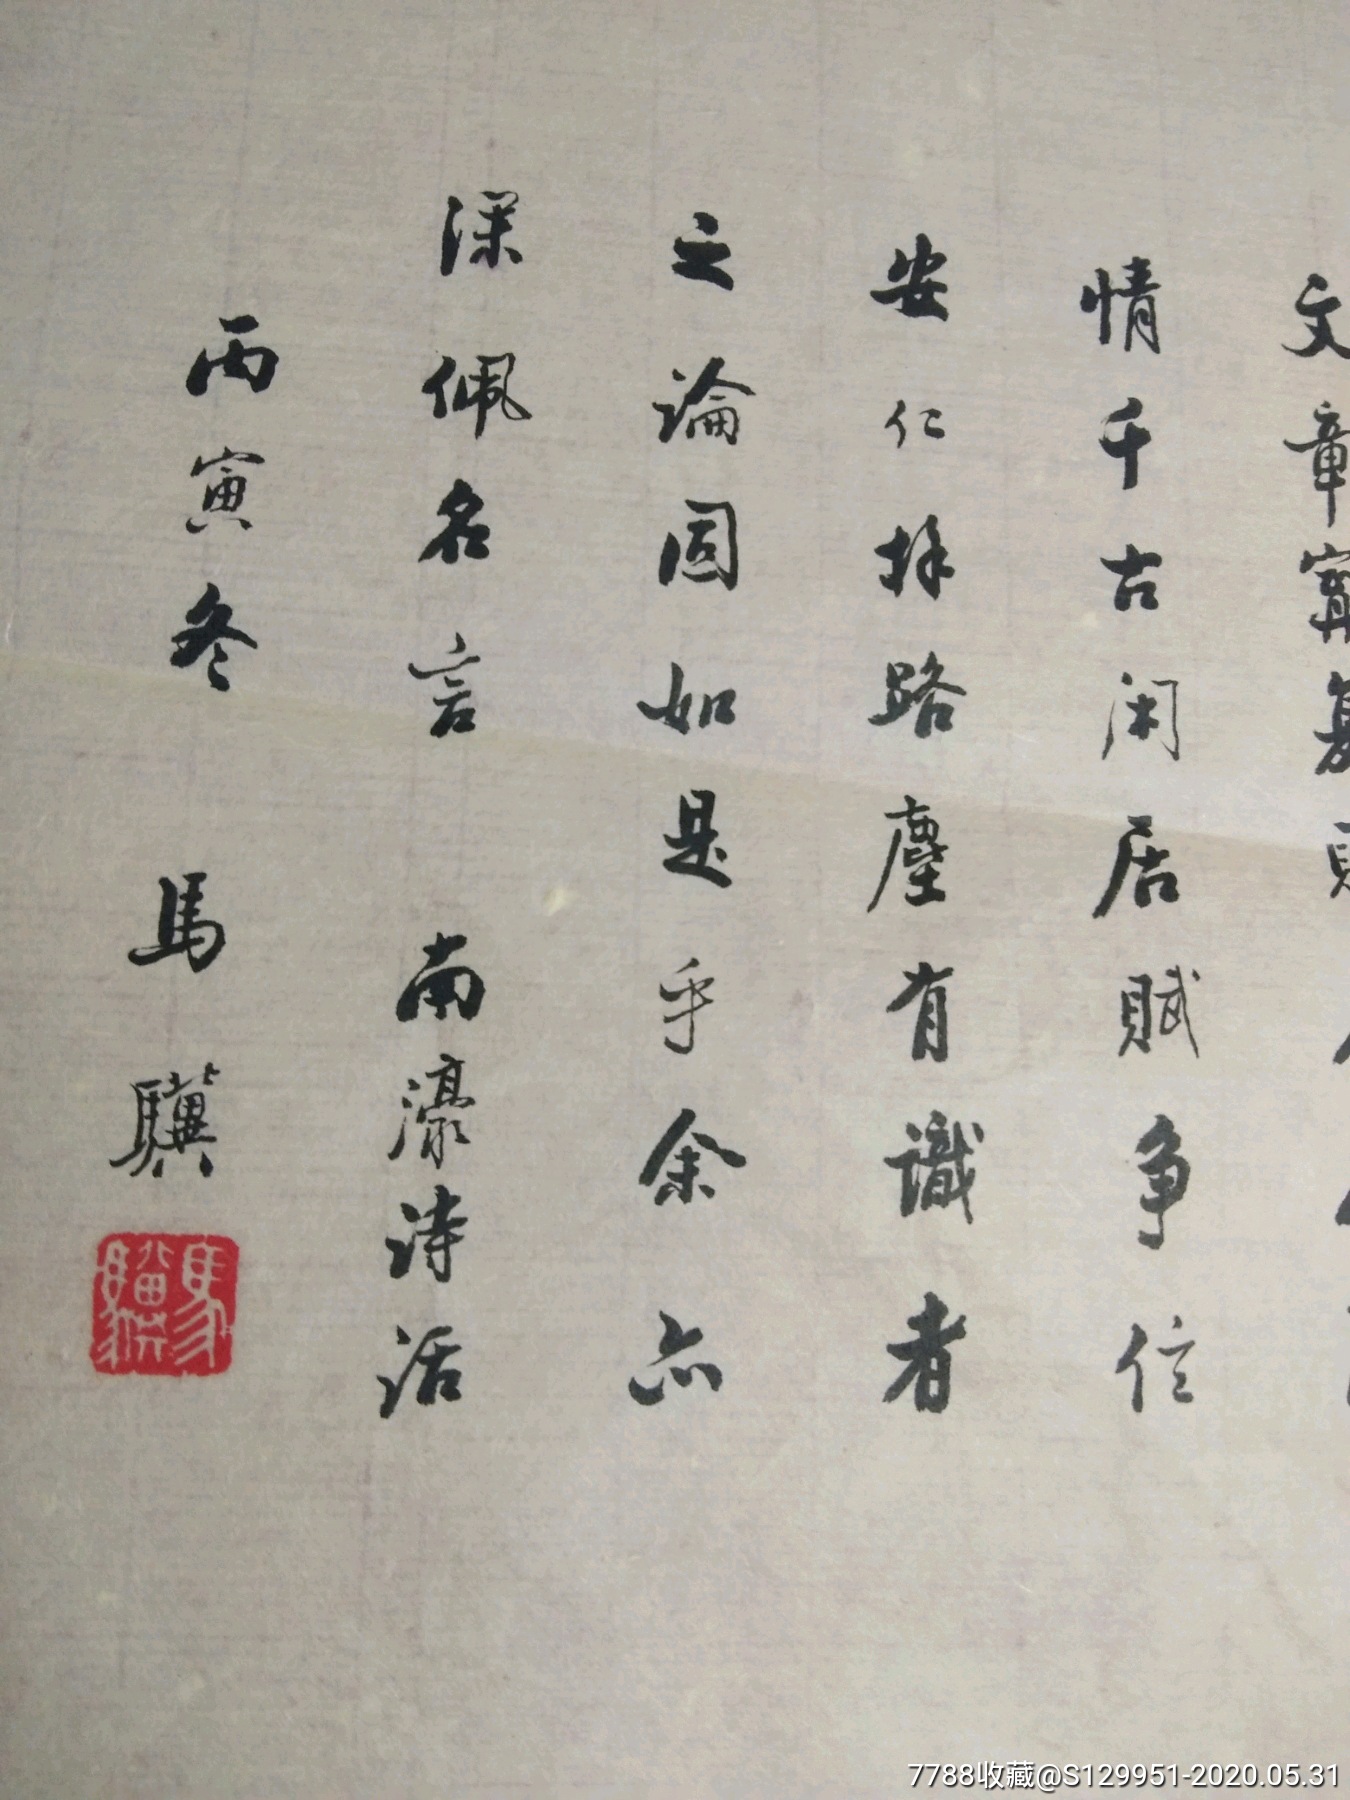 文章寧復
情千古闲居賦争信
安仁拜路塵有識者
之論固如是乎余亦
深佩名言 南濠诗话
丙寅冬 馬驥
馬驥
7788收藏@S129951-2020.05.31